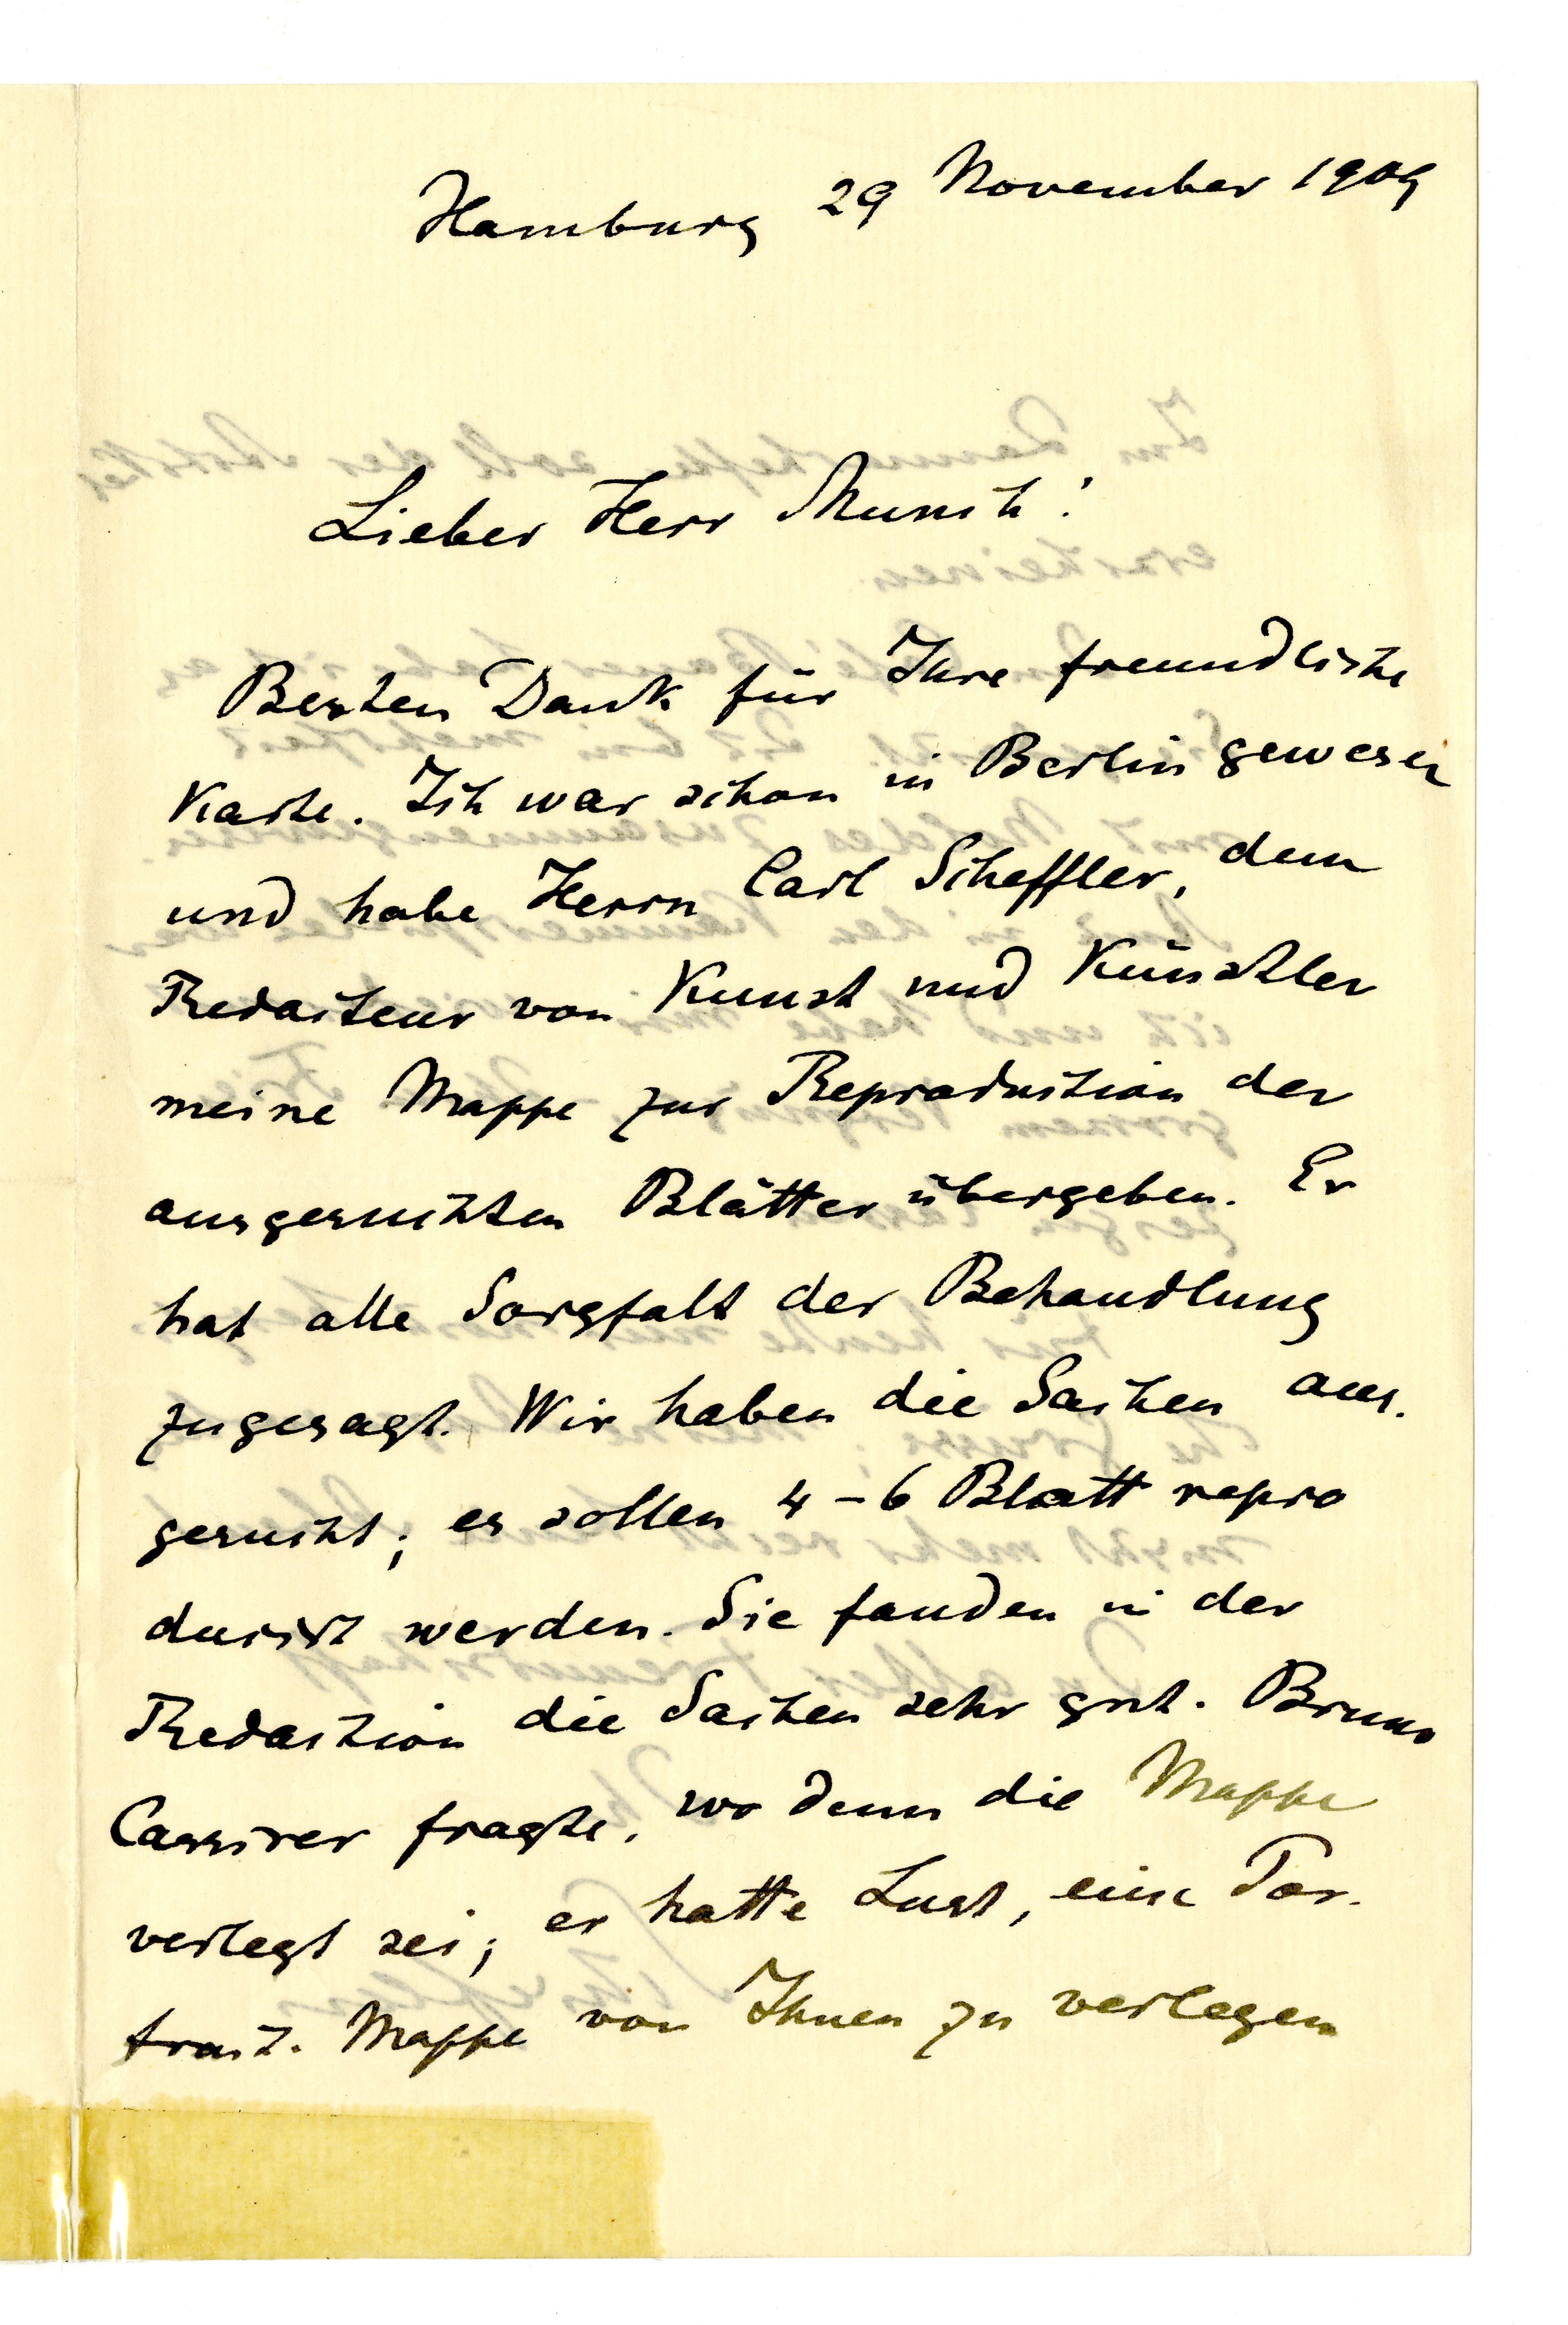 Hamburg 29 November 1909
Lieber Herr Munch!
Besten Dank für Ihre freundliche
Karte. Ich war schon in Berlin gewesen
und habe Herrn Carl Scheffler, dem
Redacteur von Kunst und Künstler
meine Mappe zur Reproduction der
ausgesuchten Blätter übergeben. Er
hat alle Sorgfalt der Behandlung
zugesagt. Wir haben die Sachen aus-
gesucht; es sollen 4-6 Blatt repro
ducirt werden. Sie fanden in der
Redaction die Sachen sehr gut. Bruno
Cassirer fragte, wo denn die Mappe
verlegt sei; er hatte Lust, eine Por-
trait-Mappe von Ihnen zu verlegen